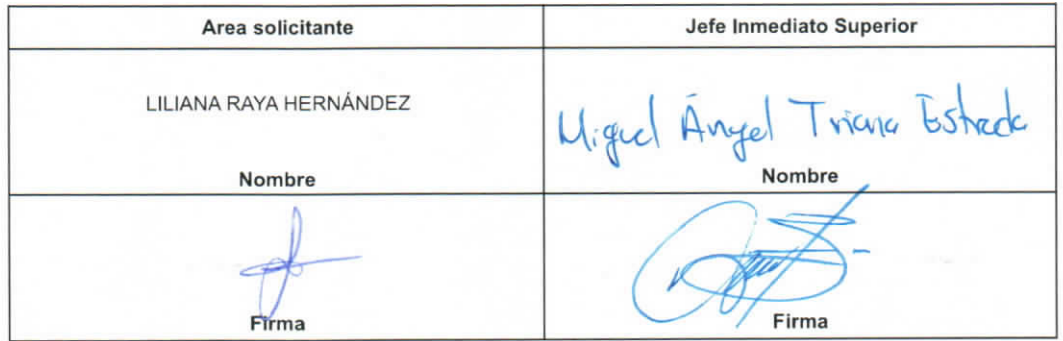 Area solicitante
Jefe Inmediato Superior
LILIANA RAYA HERNÁNDEZ
Miguel Ángel Triana Estrada
Nombre
Nombre
Firma
Firma